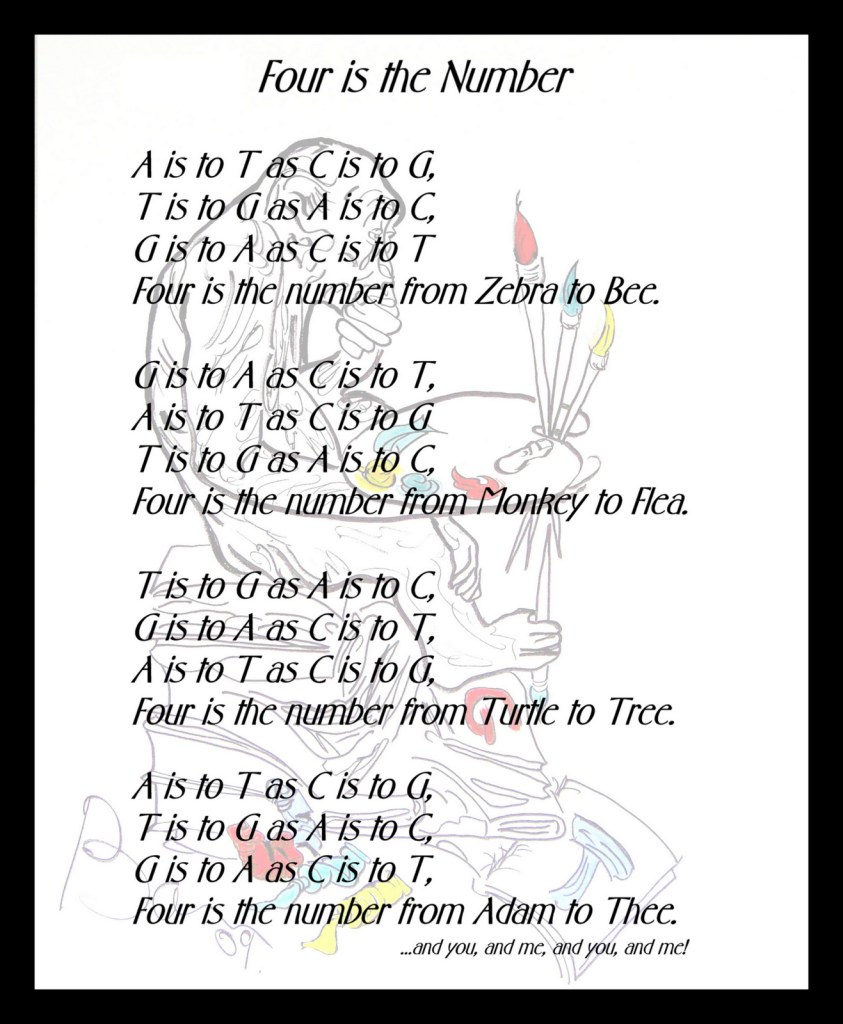 Four is the Number
A is to T as C is to G,
T is to G as A is to C,
G is to A as C is to T
Four is the number from Zebra to Bee.
G is to A as C is to T,
A is to T as C is to G
T is to G as A is to C,
Four is the number from Monkey to Flea.
T is to G as A is to C,
G is to A as C is to T,
A is to T as C is to G,
Four is the number from Turtle to Tree.
A is to T as C is to G,
T is to G as A is to C,
G is to A as C is to T,
Four is the number from Adam to Thee.
...and you, and me, and you, and me!
09